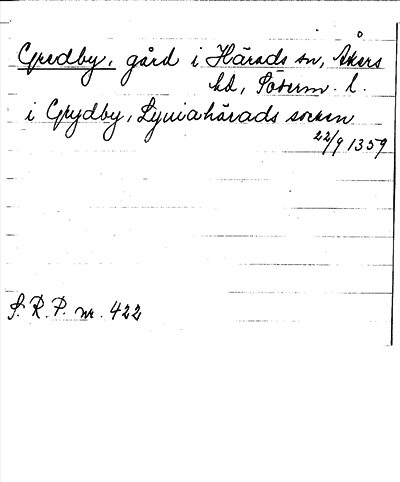 Gredby, gård i Härads sn, Åkers
hd, Söderm. l.
i Grydby, Lyuiahärads socken
22/9 1359
S. R. P. nr. 422